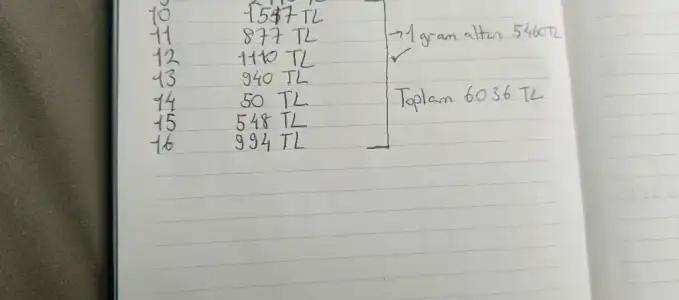 10 1517 TL
11 877 TL
→1 gram altın 5460TL
12 1110 TL
✓
13 940 TL
14 50 TL
Toplam 6036 TL
15 548 TL
16 994 TL